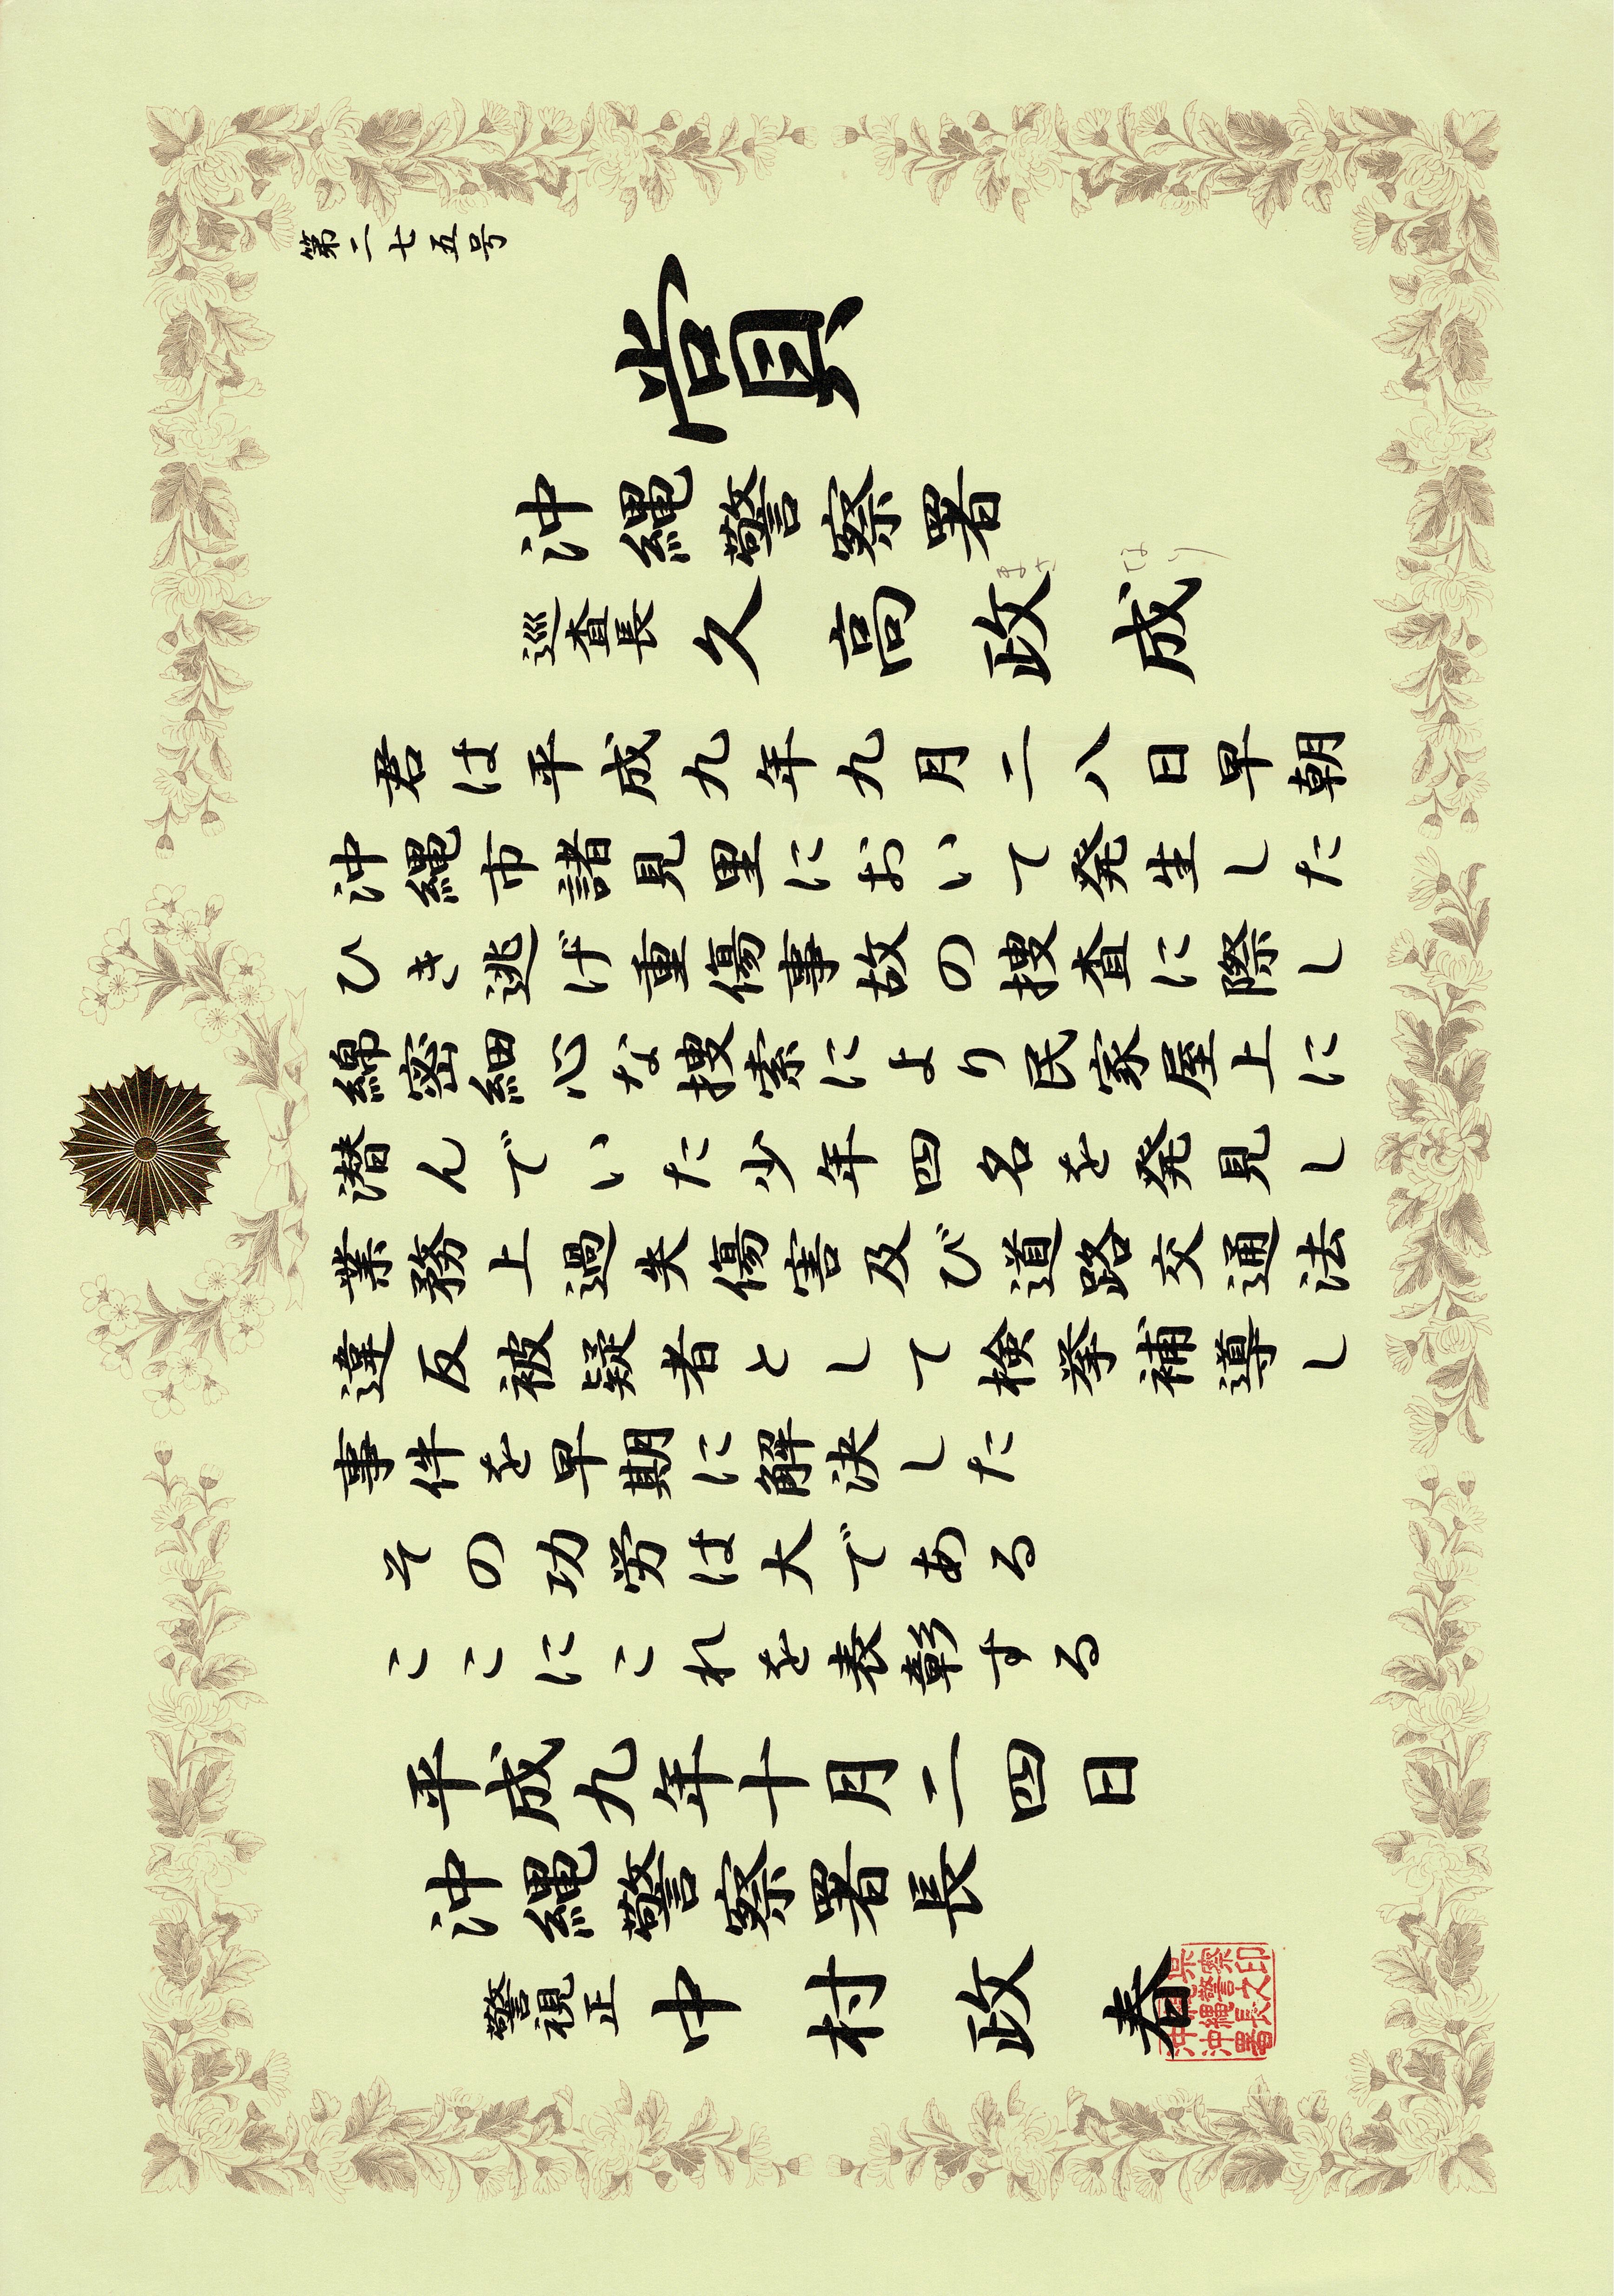 第二七五号
賞
沖縄警察署
巡査長 久高政成
まさ なり
君は平成九年九月二八日早朝
沖縄市諸見里において発生した
ひき逃げ重傷事故の捜査に際し
綿密細心な捜索により民家屋上に
潜んでいた少年四名を発見し
業務上過失傷害及び道路交通法
違反被疑者として検挙補導し
事件を早期に解決した
その功労は大である
ここにこれを表彰する
平成九年十月二四日
沖縄警察署長
警視正 中村政春
沖縄県
沖縄警察
署長之印